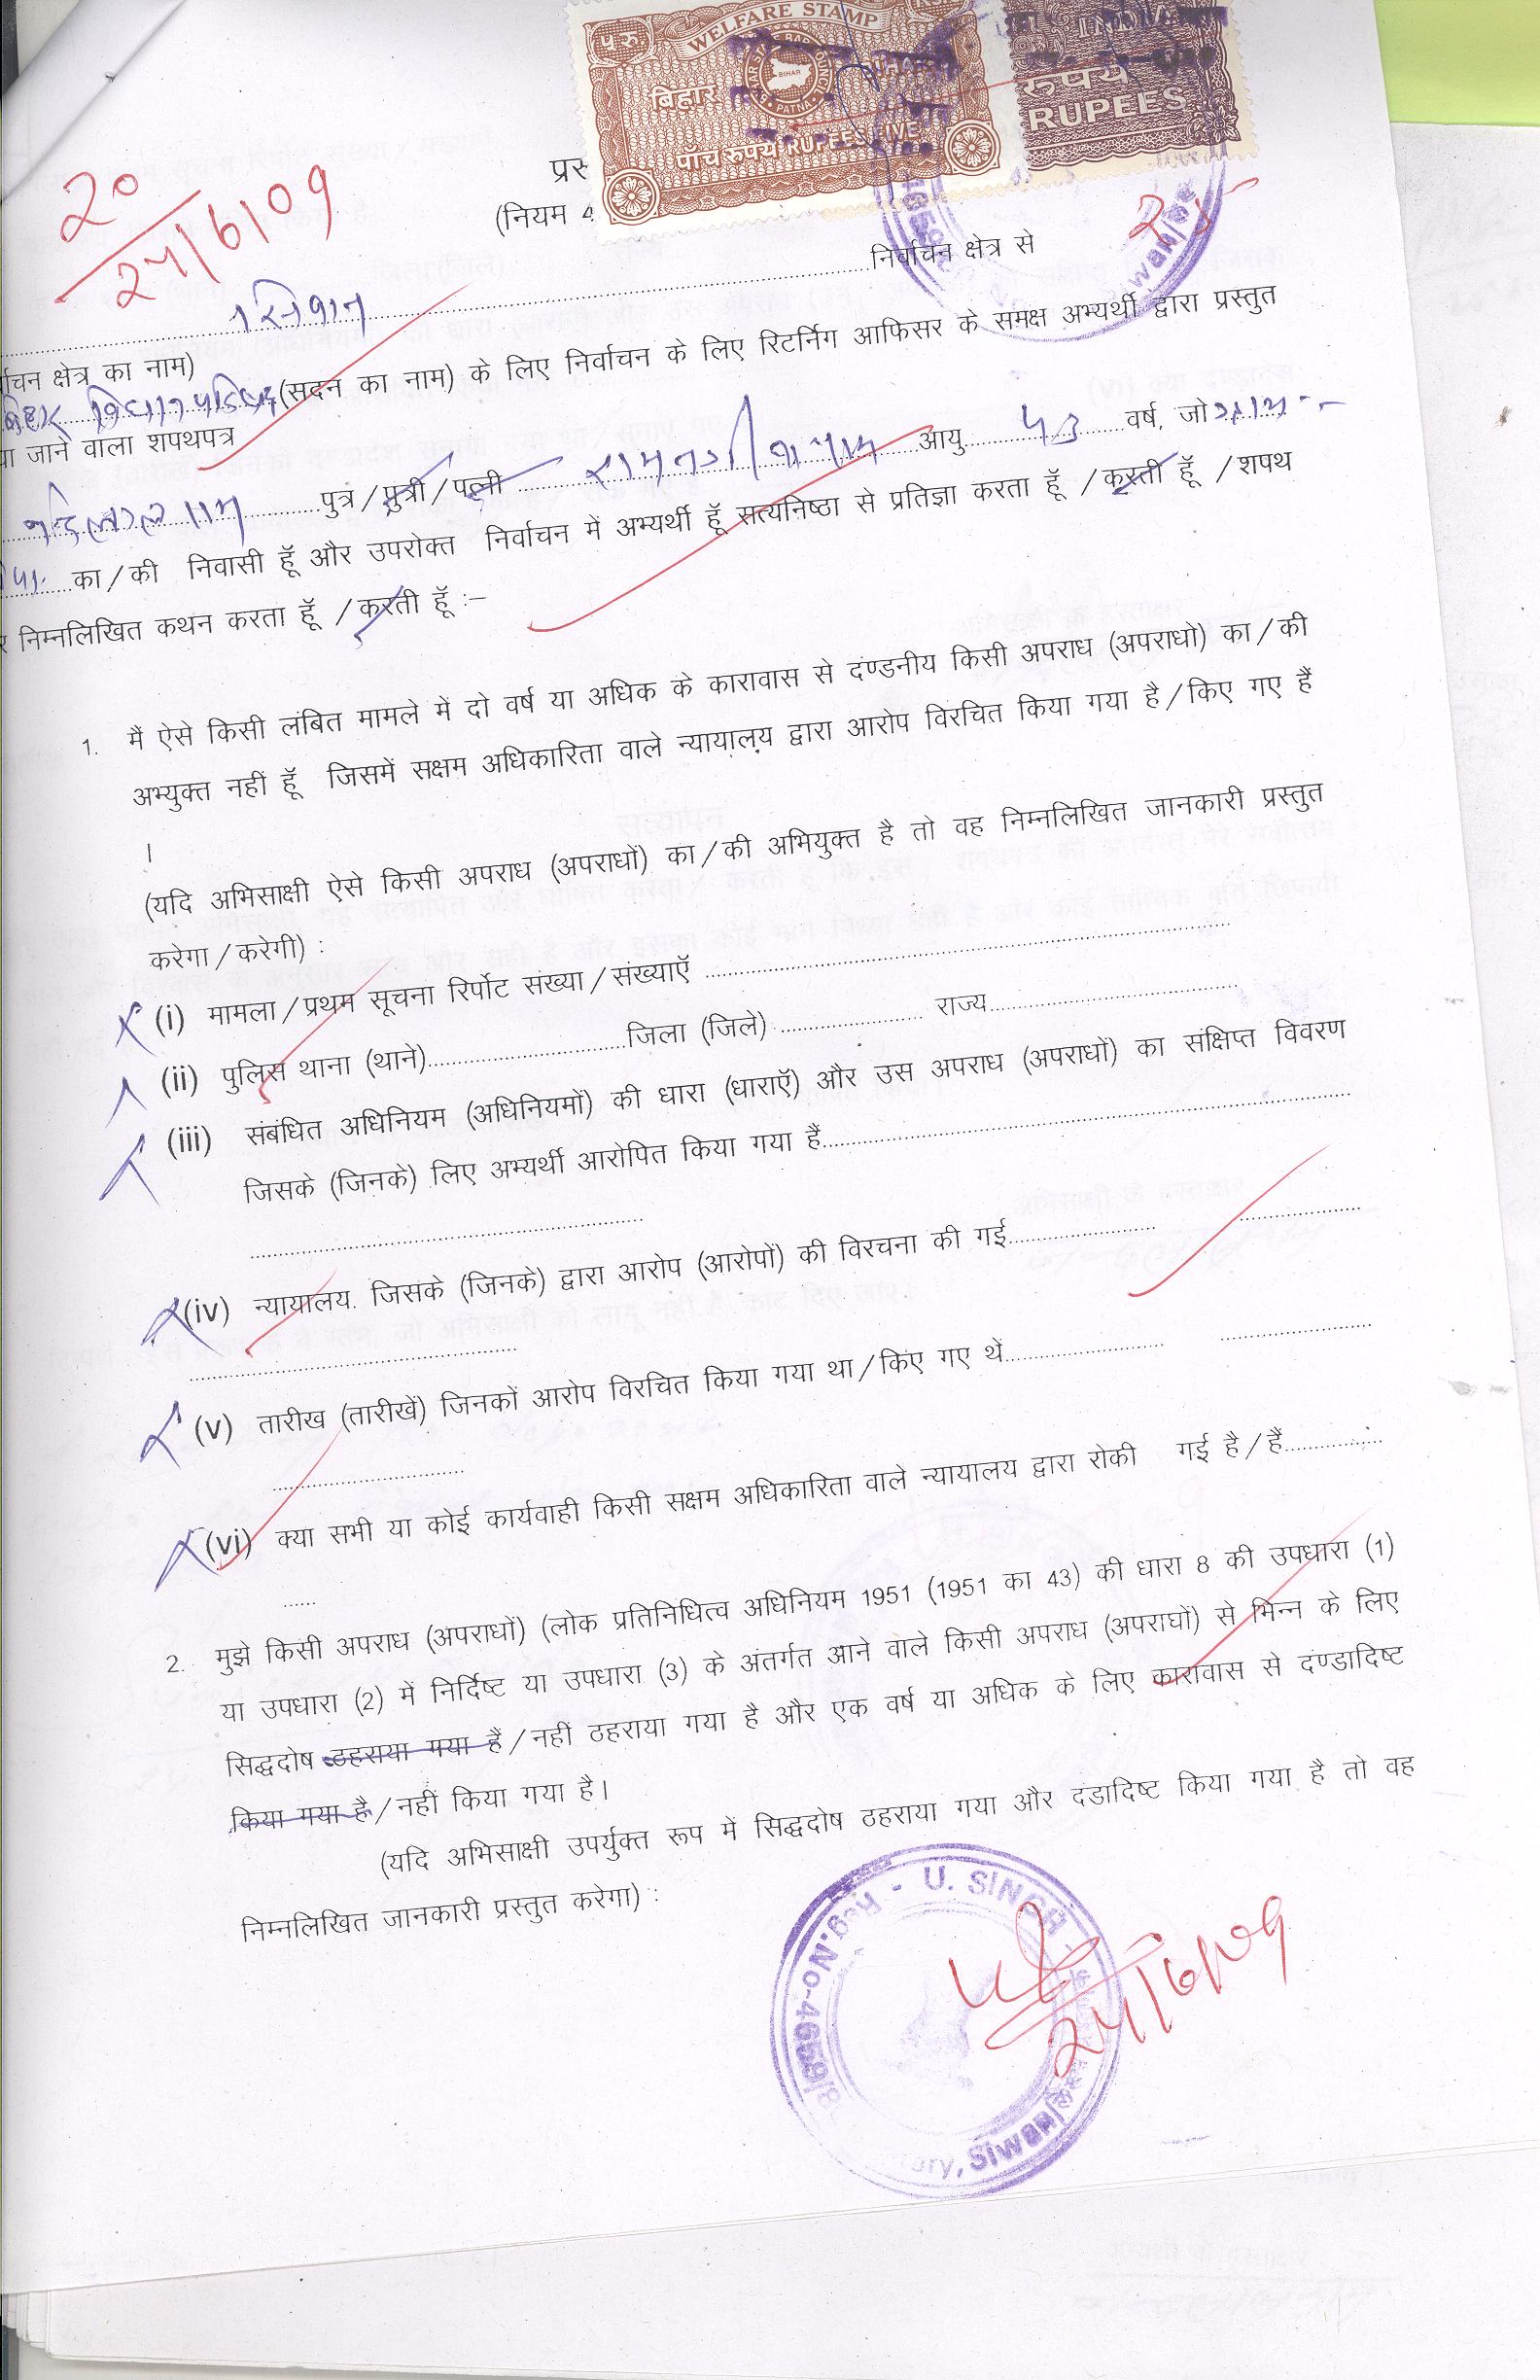 WELFARE STAMP
५ रु
BIHAR
PATNA
बिहार
पाँच रुपये RUPEES FIVE
INDIA
रुपये
RUPEES
प्रस
(नियम 4
20
24/6/09
निर्वाचन क्षेत्र से
सिवान
र्वाचन क्षेत्र का नाम)
बिहार विधान परिषद (सदन का नाम) के लिए निर्वाचन के लिए रिटर्निंग आफिसर के समक्ष अभ्यर्थी द्वारा प्रस्तुत
या जाने वाला शपथपत्र
पुत्र/पुत्री/पत्नी आयु वर्ष, जो ग्राम
का/की निवासी हूँ और उपरोक्त निर्वाचन में अभ्यर्थी हूँ सत्यनिष्ठा से प्रतिज्ञा करता हूँ /करती हूँ /शपथ
र निम्नलिखित कथन करता हूँ /करती हूँ :–
1. मैं ऐसे किसी लंबित मामले में दो वर्ष या अधिक के कारावास से दंण्डनीय किसी अपराध (अपराधो) का/की
अभ्युक्त नहीं हूँ जिसमें सक्षम अधिकारिता वाले न्यायालय द्वारा आरोप विरचित किया गया है/किए गए हैं
।
(यदि अभिसाक्षी ऐसे किसी अपराध (अपराधों) का/की अभियुक्त है तो वह निम्नलिखित जानकारी प्रस्तुत
करेगा/करेगी) :
(i) मामला/प्रथम सूचना रिर्पोट संख्या/संख्याएँ
(ii) पुलिस थाना (थाने) जिला (जिले) राज्य
(iii) संबंधित अधिनियम (अधिनियमों) की धारा (धाराएँ) और उस अपराध (अपराधों) का संक्षिप्त विवरण
जिसके (जिनके) लिए अभ्यर्थी आरोपित किया गया हैं
(iv) न्यायालय. जिसके (जिनके) द्वारा आरोप (आरोपों) की विरचना की गई
(v) तारीख (तारीखें) जिनकों आरोप विरचित किया गया था/किए गए थें
(vi) क्या सभी या कोई कार्यवाही किसी सक्षम अधिकारिता वाले न्यायालय द्वारा रोकी गई है/हैं
2. मुझे किसी अपराध (अपराधों) (लोक प्रतिनिधित्व अधिनियम 1951 (1951 का 43) की धारा 8 की उपधारा (1)
या उपधारा (2) में निर्दिष्ट या उपधारा (3) के अंतर्गत आने वाले किसी अपराध (अपराघों) से भिन्न के लिए
सिद्धदोष ठहराया गया हैं/नहीं ठहराया गया है और एक वर्ष या अधिक के लिए कारावास से दंण्डादिष्ट
किया गया है/नहीं किया गया है।
(यदि अभिसाक्षी उपर्युक्त रूप में सिद्धदोष ठहराया गया और दंडादिष्ट किया गया है तो वह
निम्नलिखित जानकारी प्रस्तुत करेगा) :
Reg.No-4659/8 - U. SINGH
Siwan
24/6/09